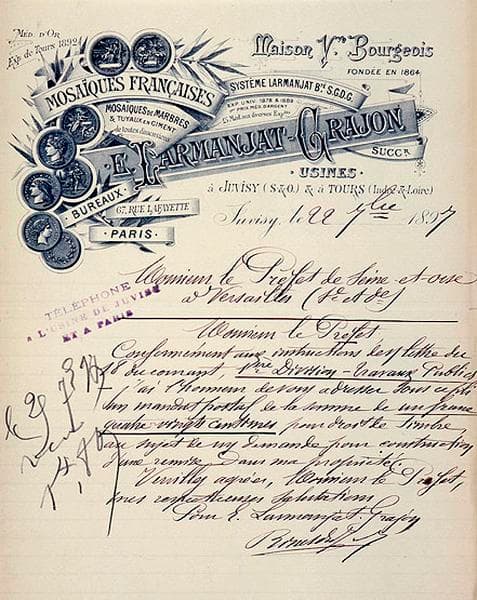 Méd. d'Or
Exp. de Tours 1892
Maison Vve Bourgeois
FONDÉE EN 1864
MOSAÏQUES FRANÇAISES
SYSTÈME LARMANJAT Bté S.G.D.G.
MOSAÏQUES DE MARBRES
& TUYAUX EN CIMENT
de toutes dimensions
EXP. UNIV. 1878 & 1889
PRIX, MED. D'ARGENT
E. LARMANJAT-GRAJON
SUCCR
USINES
à JUVISY (S&O.) & à TOURS (Indre & Loire)
BUREAUX
67, RUE LAFAYETTE
PARIS
Juvisy, le 22 7bre 1897
TÉLÉPHONE
A L'USINE DE JUVISY
ET A PARIS
Monsieur le Préfet de Seine-et-Oise
à Versailles (S et O)
Monsieur le Préfet
Conformément aux instructions de lettre du
8 du courant, 1ère Division - Travaux Publics
j'ai l'honneur de vous adresser sous ce pli
un mandat postal de la somme de un franc
quatre vingts centimes pour droits de timbre
au sujet de ma demande pour construction
d'une remise dans ma propriété.
Veuillez agréer, Monsieur le Préfet,
mes respectueuses salutations
Pour E. Larmanjat-Grajon
le 29 7bre 97
1f,80